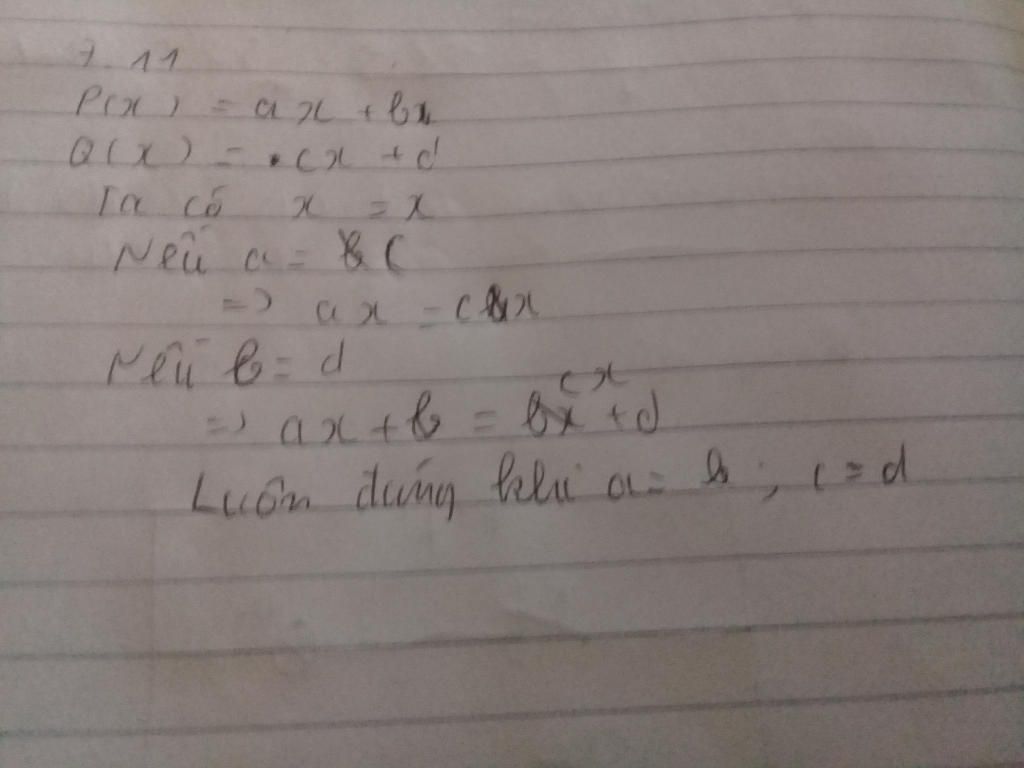 7.11
P(x) = ax + bx
Q(x) = cx + d
Ta có x = x
Nếu a = c
=> ax = cx
Nếu b = d
=> ax + b = cx + d
Luôn đúng khi a = b ; c = d